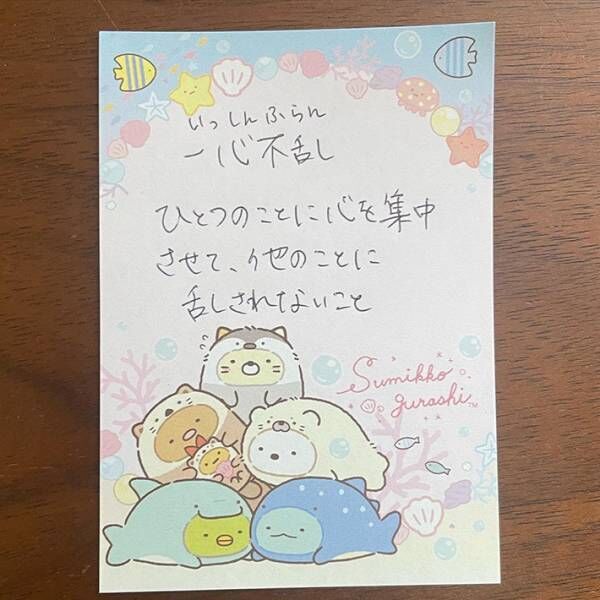 いっしんふらん
一心不乱
ひとつのことに心を集中
させて、他のことに
乱されないこと
Sumikko
gurashi™